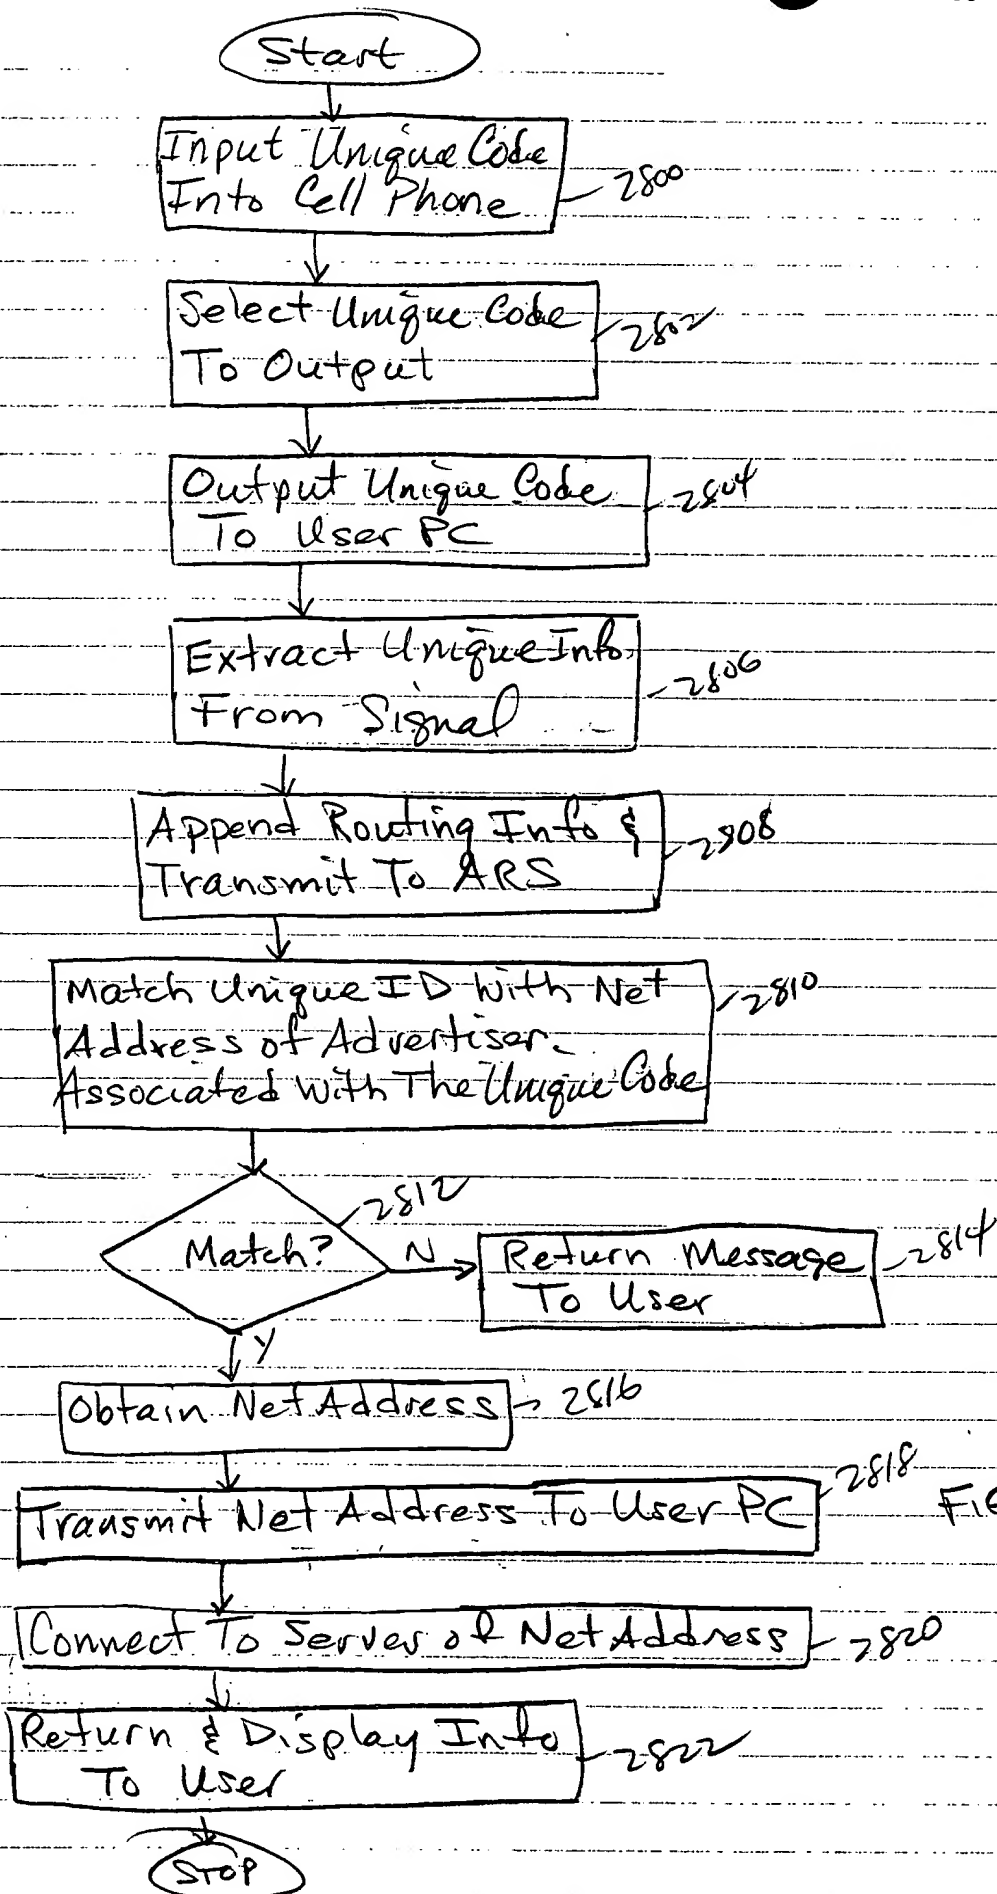 Start
Input Unique Code
Into Cell Phone
2800
Select Unique Code
To Output
2802
Output Unique Code
To User PC
2804
Extract Unique Info
From Signal
2806
Append Routing Info &
Transmit To ARS
2808
Match Unique ID With Net
Address of Advertiser
Associated With The Unique Code
2810
2812
Match?
N
Return Message
To User
2814
Y
Obtain Net Address
2816
Transmit Net Address To User PC
2818
Connect To Server of Net Address
2820
Return & Display Info
To User
2822
STOP